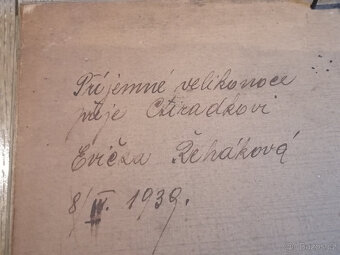 Příjemné velikonoce
přeje Ctiradkovi
Evička Řeháková
8/IV. 1939.